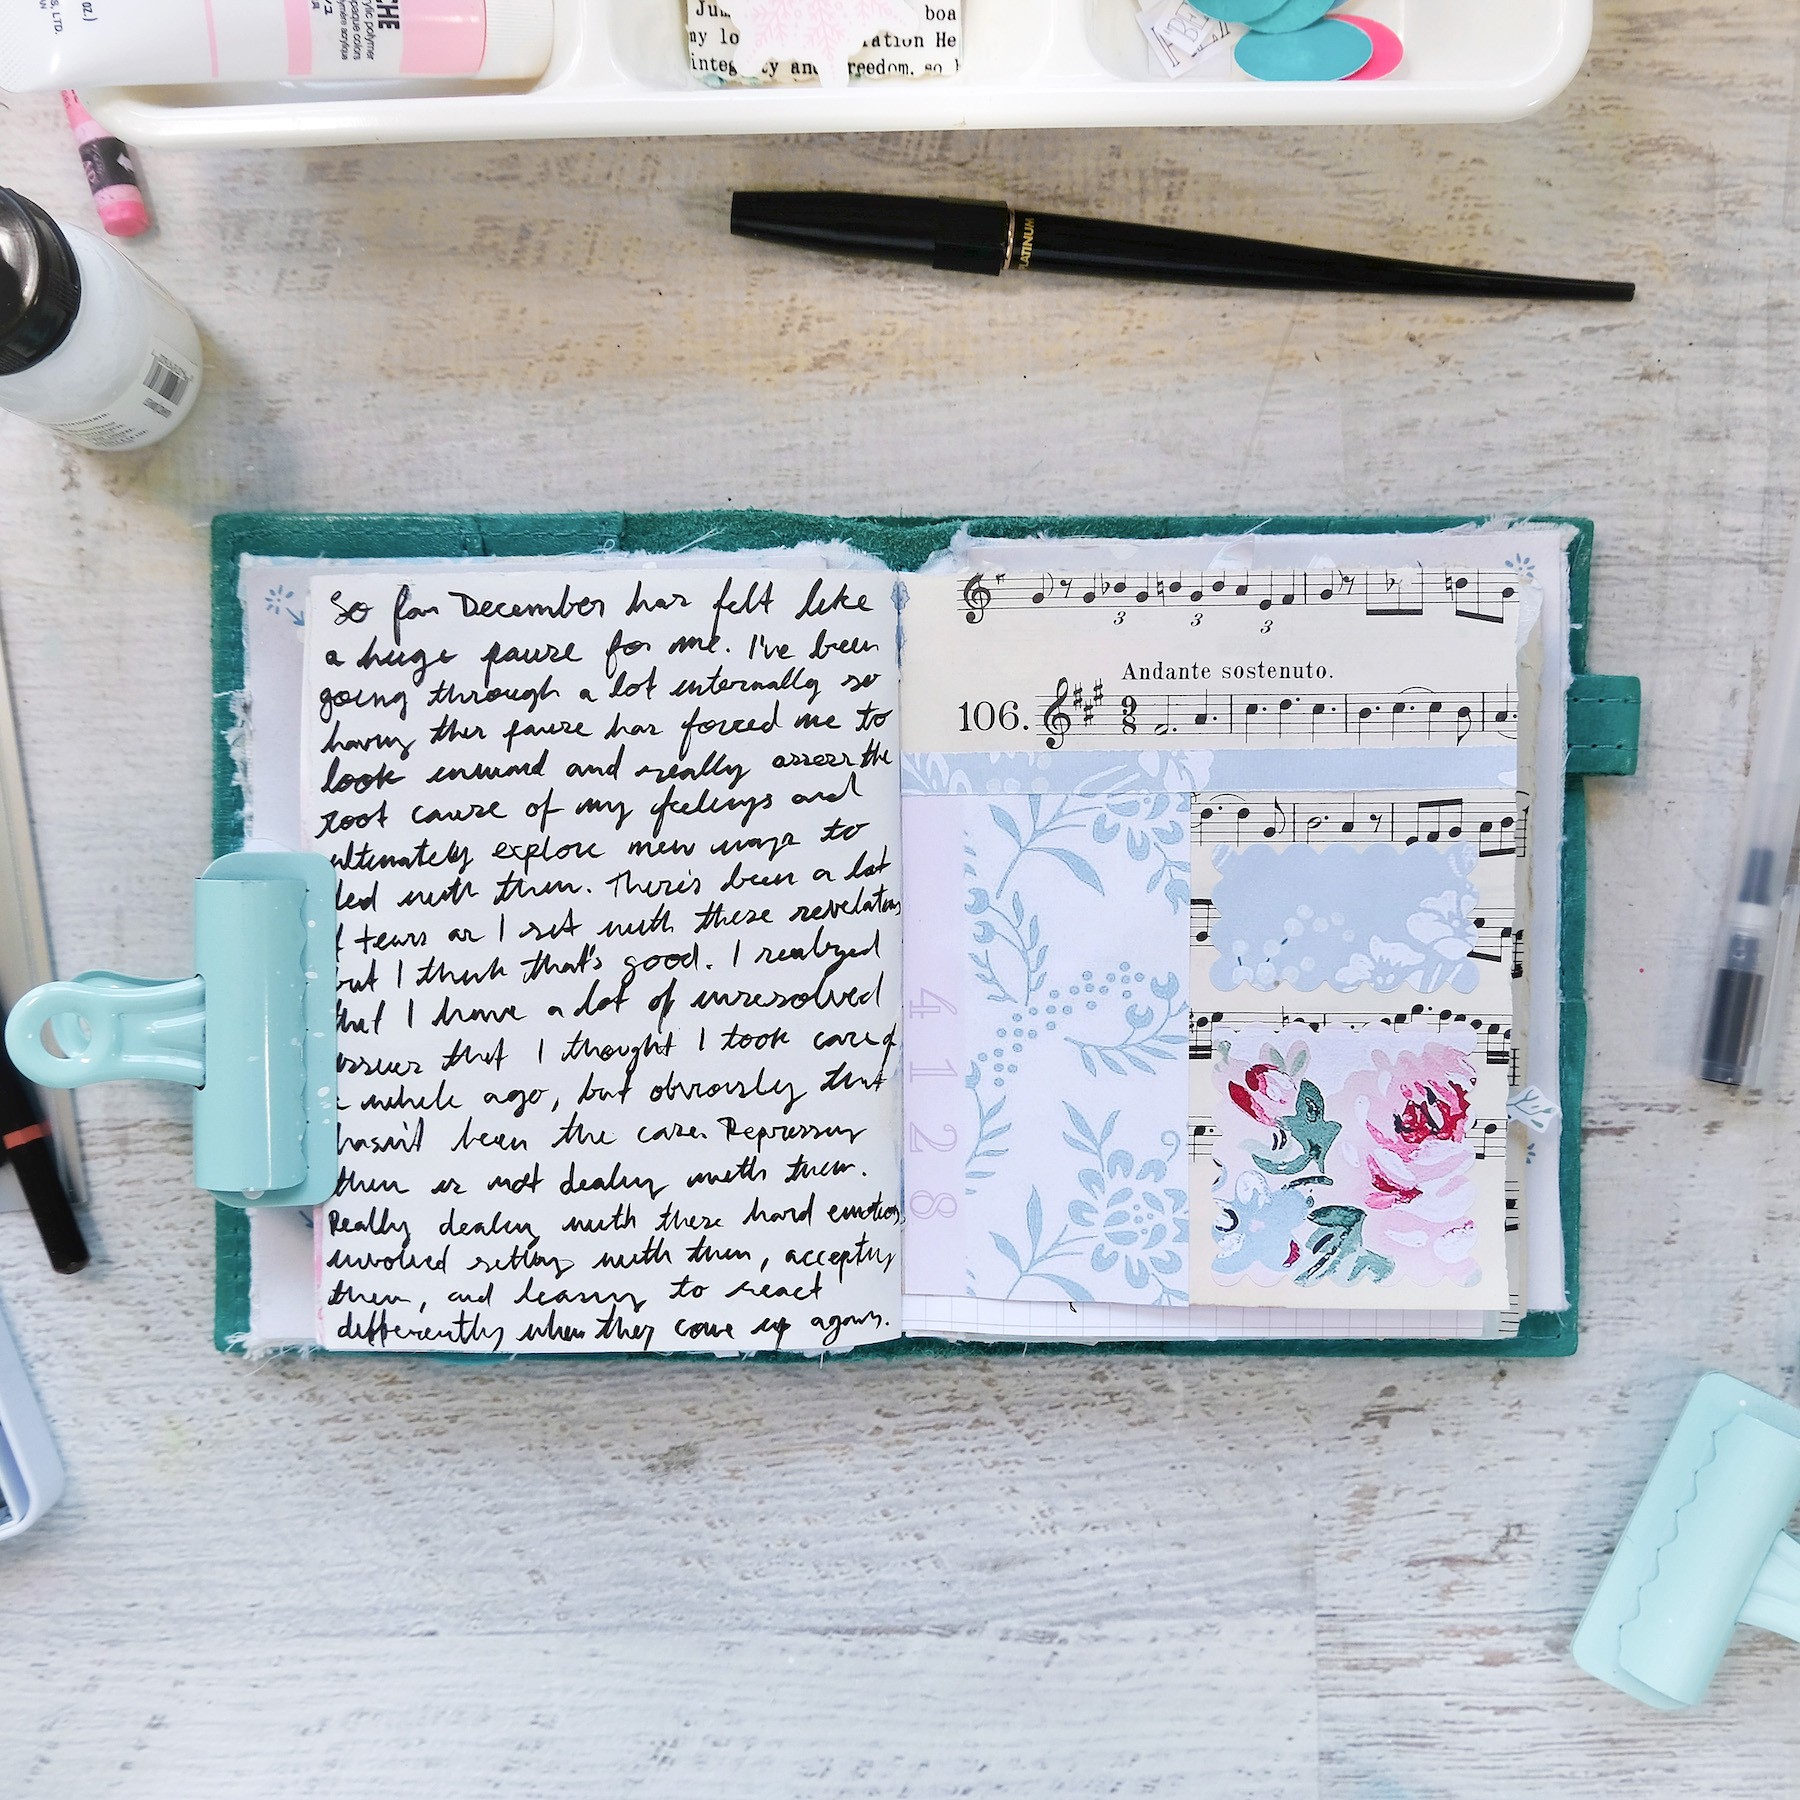 OZ.)
S. LTD.
AN
CHE
acrylic polymer
opaque colors
Jun
boa
my lo
ration He
integ ty and reedom. so
ABE
PLATINUM
So far December has felt like
a huge pause for me. I've been
going through a lot internally so
having this pause has forced me to
look inward and really assess the
root cause of my feelings and
ultimately explore new ways to
deal with them. There's been a lot
of tears as I sit with these revelations
but I think that's good. I realized
that I have a lot of unresolved
issues that I thought I took care of
a while ago, but obviously that
hasn't been the case. Repressing
them is not dealing with them.
Really dealing with these hard emotions
involved sitting with them, accepting
them, and learning to react
differently when they come up again.
3 3 3
Andante sostenuto.
106.
9
8
4 1 2 8